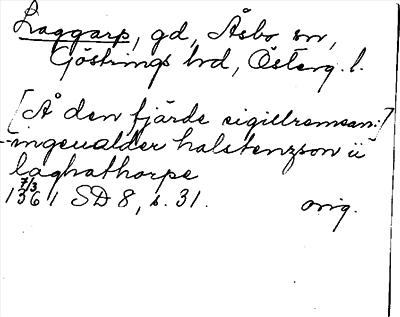 Laggarp, gd, Åsbo sn,
Göstrings hd, Österg. l.
[Å den fjärde sigillremsan:]
-ingeualder halstenzson ii
laghathorpe
7/3
1361 SD 8, s. 31. orig.